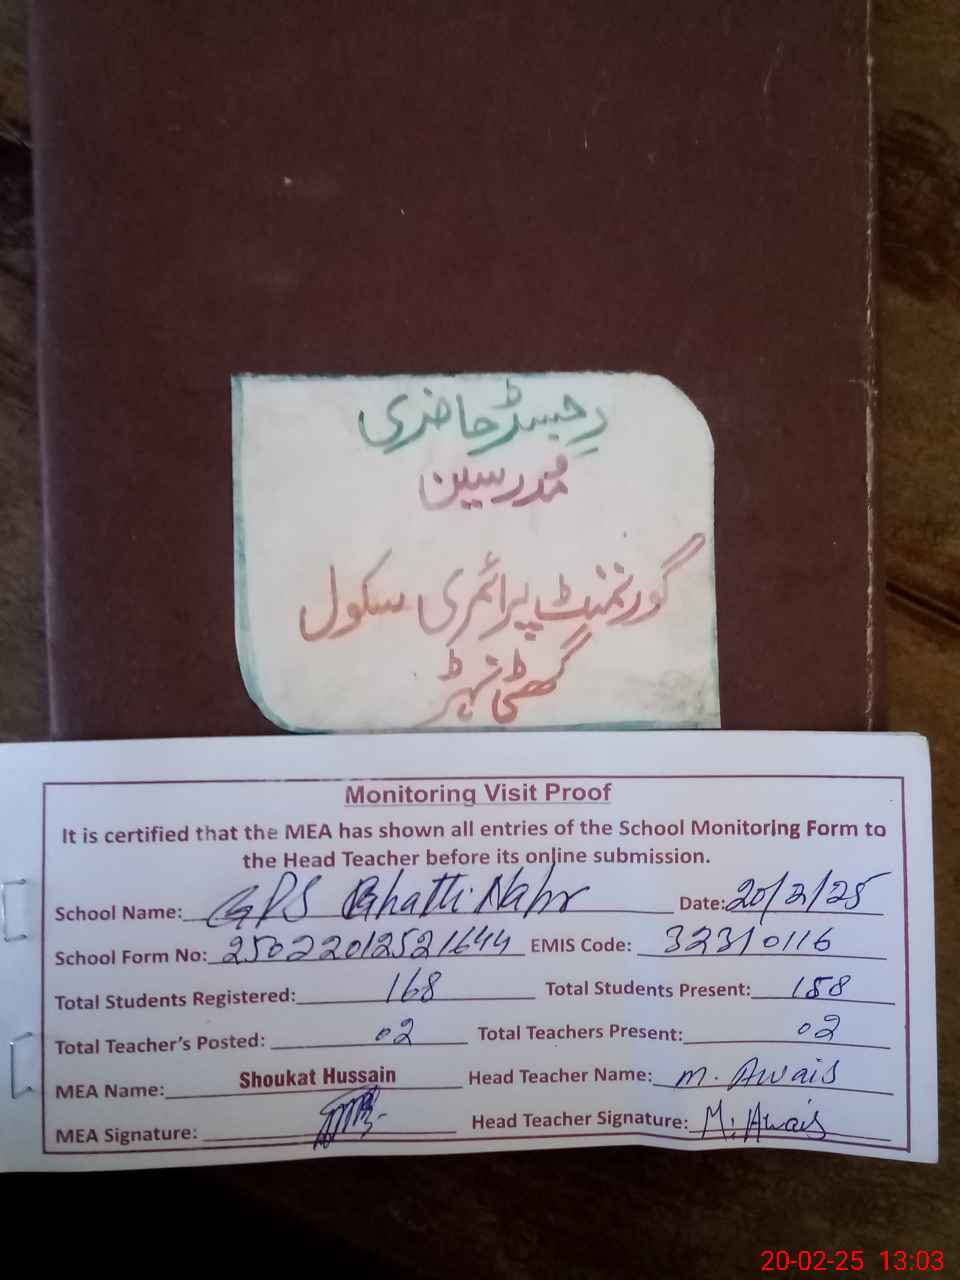 رجسٹر حاضری
مدرسین
گورنمنٹ پرائمری سکول
گھٹی نہر
Monitoring Visit Proof
It is certified that the MEA has shown all entries of the School Monitoring Form to
the Head Teacher before its online submission.
School Name: GPS Ghatti Nahr Date: 20/2/25
School Form No: 25022012521644 EMIS Code: 32310116
Total Students Registered: 168 Total Students Present: 158
Total Teacher's Posted: 02 Total Teachers Present: 02
MEA Name: Shoukat Hussain Head Teacher Name: M. Awais
MEA Signature: Head Teacher Signature: M. Awais
20-02-25 13:03